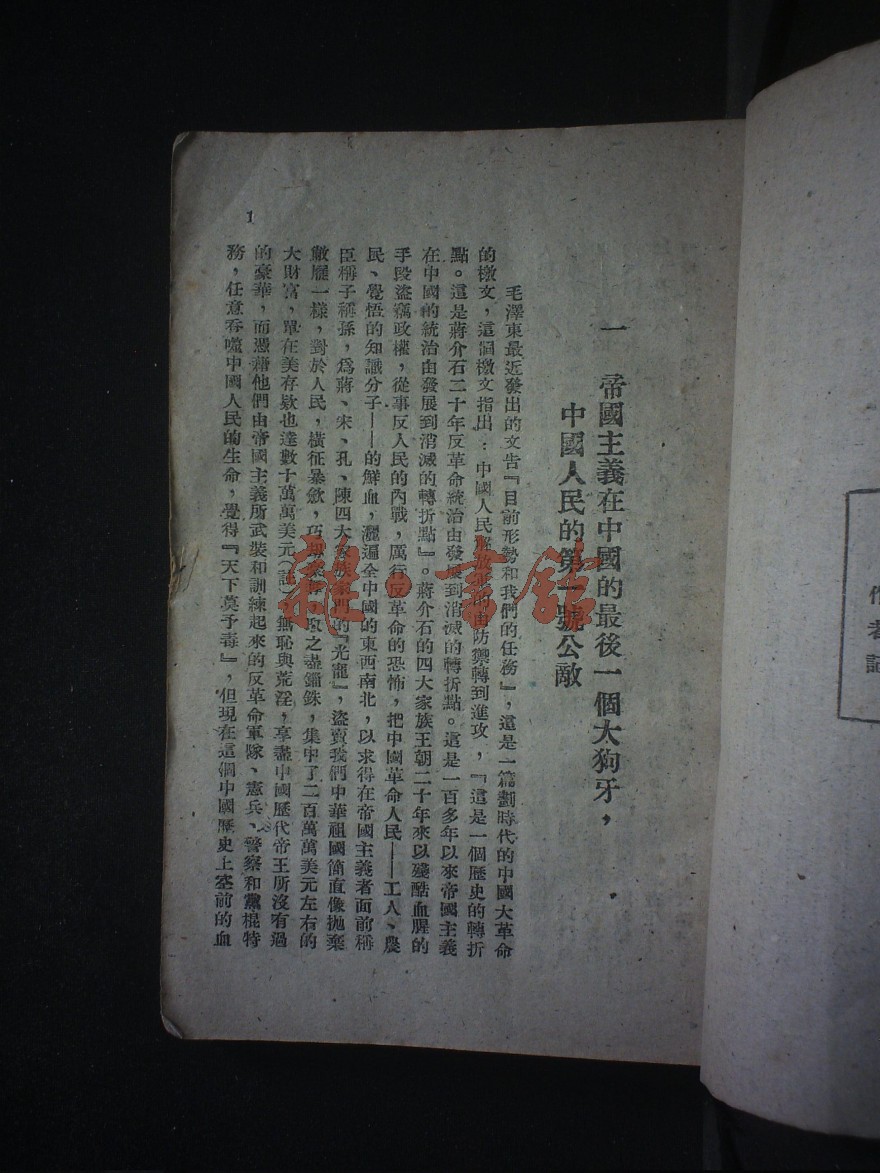 作者記
一 帝國主義在中國的最後一個大狗牙，
中國人民的第一號公敵
毛澤東最近發出的文告『目前形勢和我們的任務』，這是一篇劃時代的中國大革命
的檄文，這個檄文指出：中國人民解放軍的由防禦轉到進攻，『這是一個歷史的轉折
點。這是蔣介石二十年反革命統治由發展到消滅的轉折點。這是一百多年以來帝國主義
在中國的統治由發展到消滅的轉折點』。蔣介石的四大家族王朝二十年來以殘酷血腥的
手段盜竊政權，從事反人民的內戰，厲行反革命的恐怖，把中國革命人民——工人、農
民、覺悟的知識分子——的鮮血，灑遍全中國的東西南北，以求得在帝國主義者面前稱
臣稱子稱孫，爲蔣、宋、孔、陳四大家族豪門的『光寵』，盜賣我們中華祖國簡直像拋棄
敝屣一樣，對於人民，橫征暴斂，巧取豪奪，取之盡錙銖，集中了二百萬萬美元左右的
大財富，單在美存欵也達數十萬萬美元（註）無恥與荒淫，享盡中國歷代帝王所沒有過
的豪華，而憑藉他們由帝國主義所武裝和訓練起來的反革命軍隊、憲兵、警察和黨棍特
務，任意吞噬中國人民的生命，覺得『天下莫予毒』，但現在這個中國歷史上空前的血
1
雜·書館